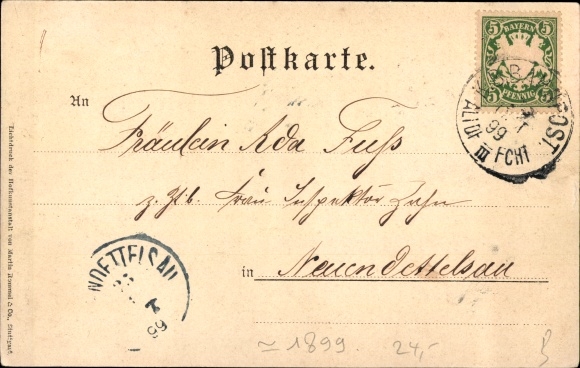 Postkarte.
5 BAYERN 5
5 PFENNIG 5
An
Fräulein Ada Fuss
z. Zt. Frau Inspektor Zahn
in Neuendettelsau
POST.
ALTD III FCHT
99
NDETTELSAU
99
Lichtdruck der Hofkunstanstalt von Martin Rommel & Co., Stuttgart.
≃ 1899 24,-